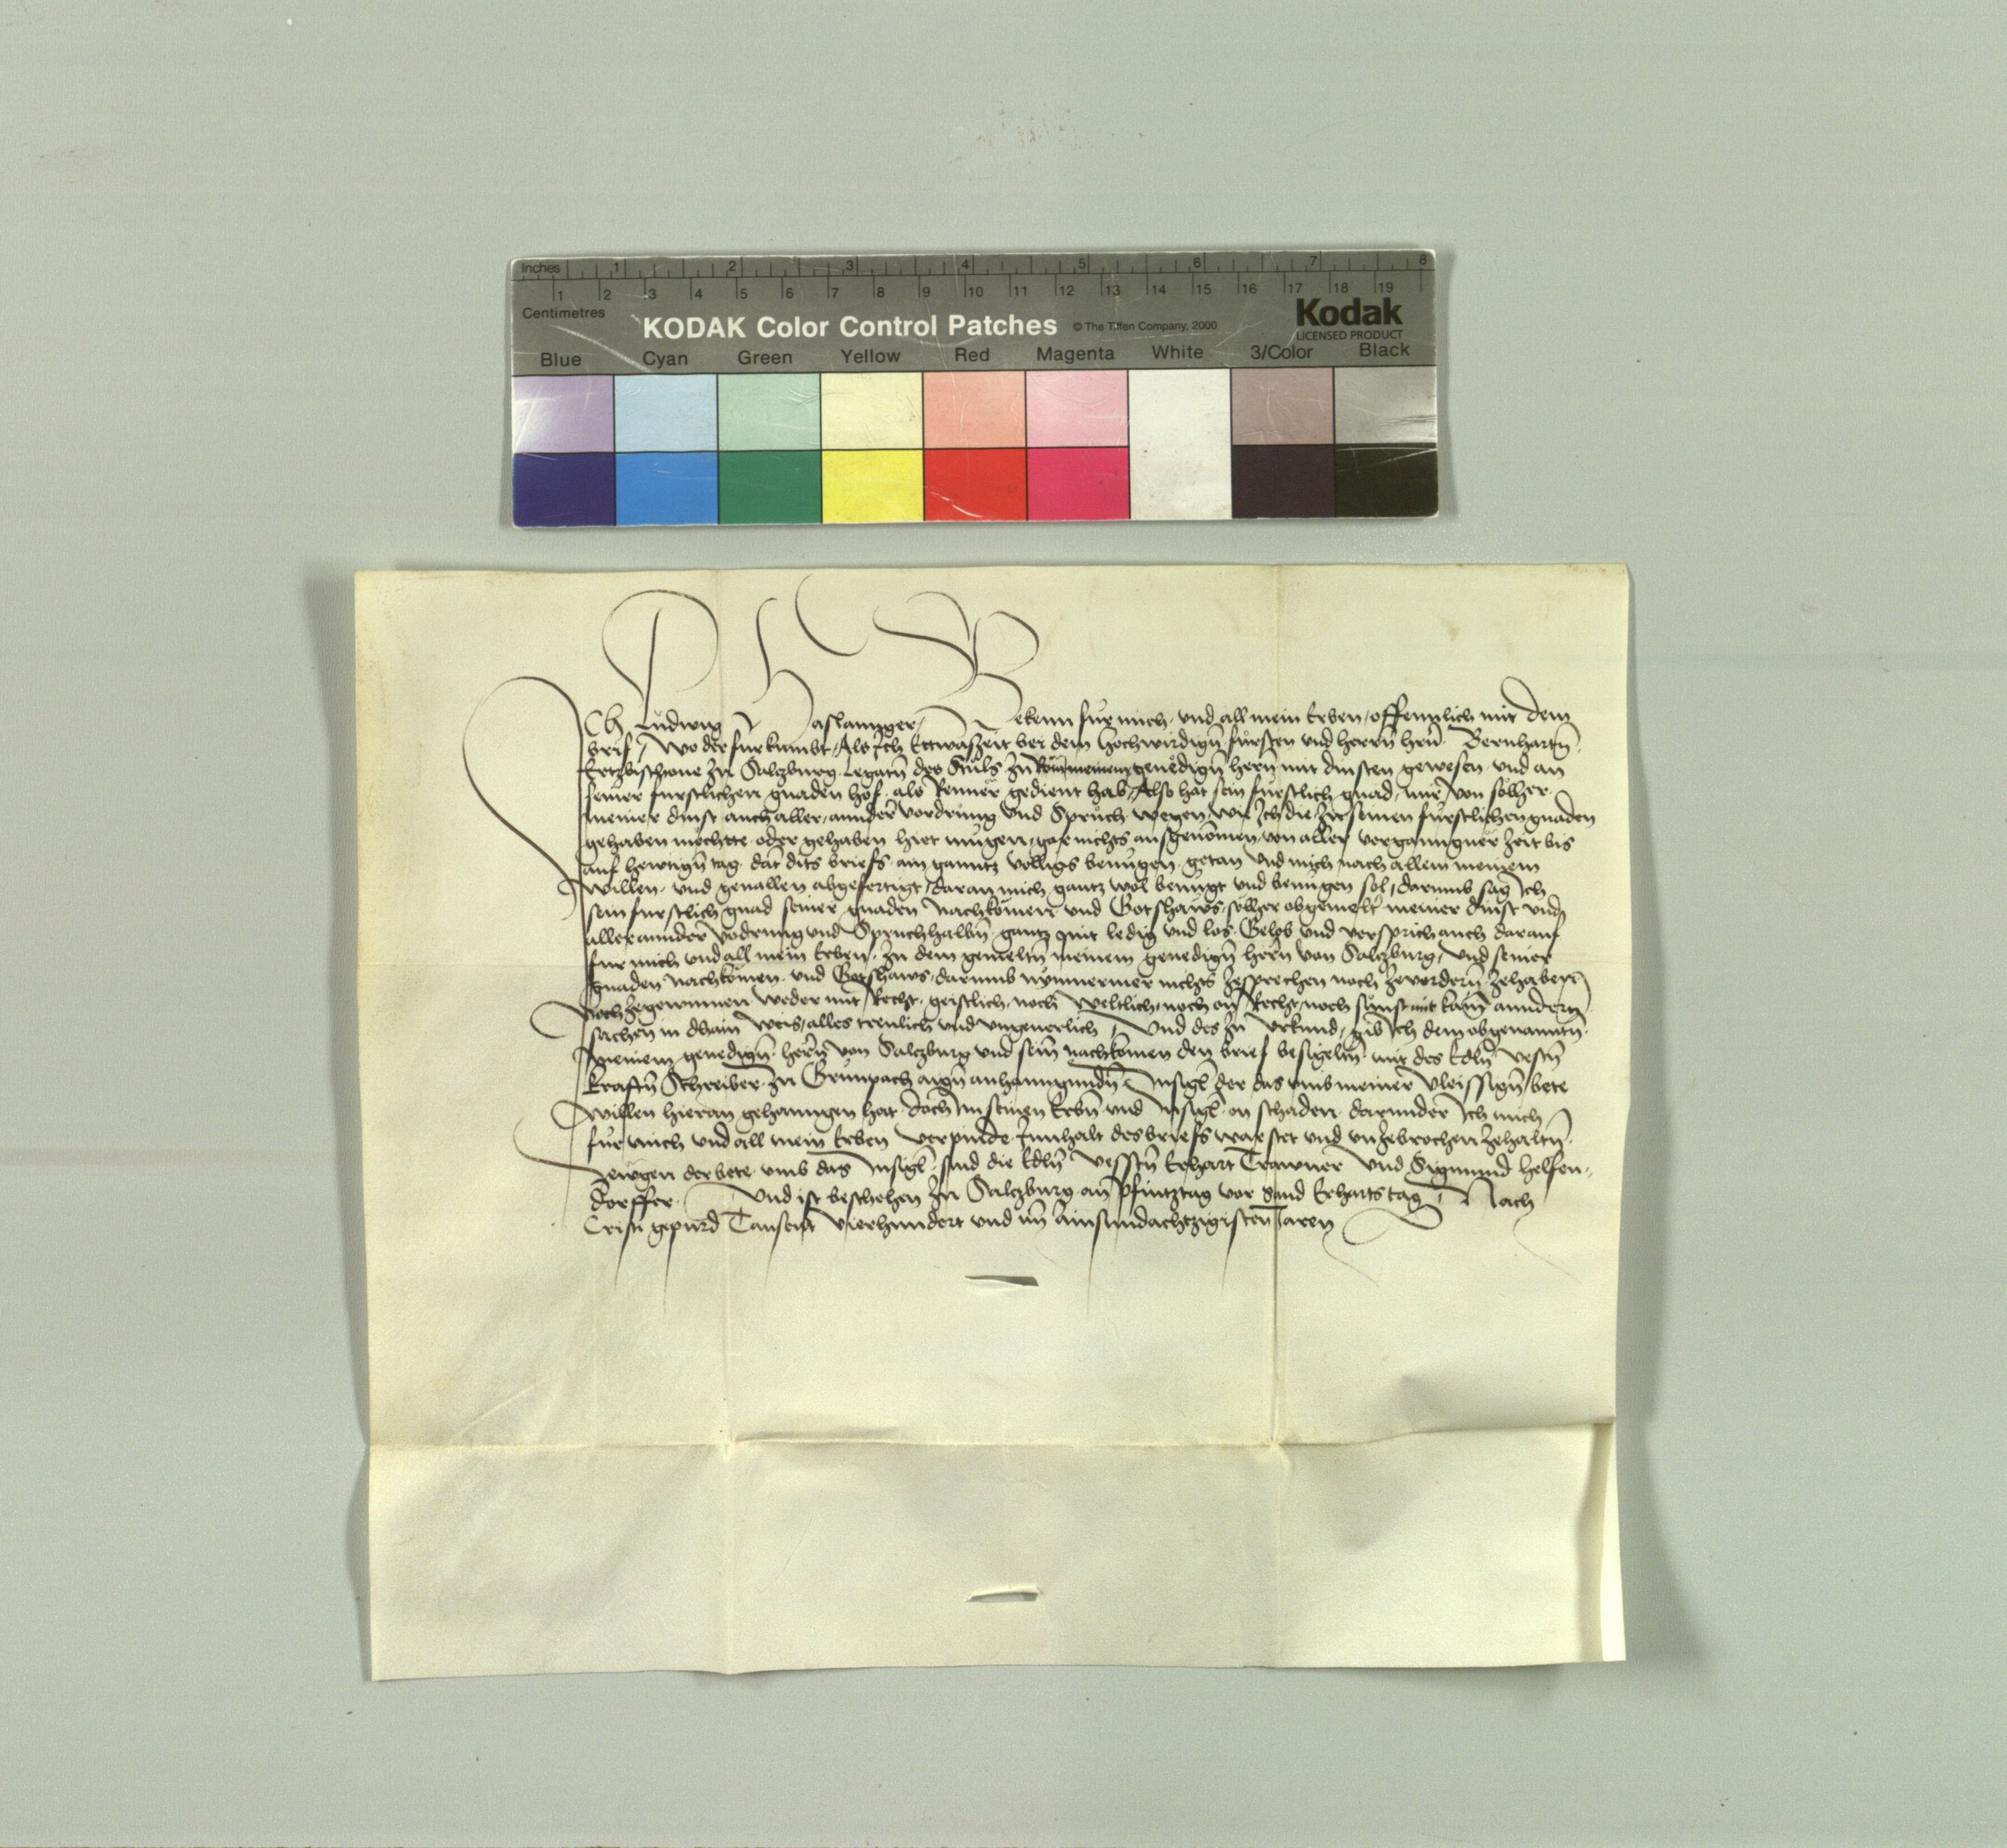 Inches 1 2 3 4 5 6 7 8
1 2 3 4 5 6 7 8 9 10 11 12 13 14 15 16 17 18 19
Centimetres
KODAK Color Control Patches © The Tiffen Company, 2000 Kodak
LICENSED PRODUCT
Blue Cyan Green Yellow Red Magenta White 3/Color Black
Ich Ludwig Haslannger Bekenn für mich und all mein Erben offennlich mit dem
brief, wo der furkumbt, Als Ich Ettwaszeit bei dem Hochwirdign fürsten und herrn hrn Bernhartn
Ertzbischoue zu Salczburg Legatn des Stuls zu Rom meinem genedign hern mit dinsten gewesen und an
seiner furstlichen gnaden hof als Renner gedient hab, Also hat sein fürstlich gnad mir von sölher
meiner dinst auch aller annder vordrung und Spruch wegen, wie Ich die zu seinen fürstlichen gnaden
gehaben möchte oder gehaben hiet mügen, gar nichts ausgenomen, von aller vergangner zeit bis
auf hewtign tag dat dits briefs ain ganntz völligs benügen getan und mich nach allem meinem
willen und geuallen abgefertigt, daran mich gantz wol benügt und benügen sol, darumb sag Ich
sein fürstlich gnad seiner gnaden Nachkömen und Gotshaws, sölher obgemelt meiner dinst und
aller annder vodrung und Spruch halbn gantz quit ledig und los Gelob und versprich auch darauf
für mich und all mein Erben, zu dem gemeltn meinem genedign hern von Salczburg, und seiner
gnaden nachkömen und Gotshaws, darumb nymmermer nichts zesprechen noch zevordern zehaben
noch zegewinnen weder mit Recht, geistlich, noch weltlich, noch on Recht, noch sünst mit kain anndern
sachen in dhain weis, alles treulich und ungeuerlich, Und des zu Urkund, gib Ich dem obgenanntn
meinem genedign hern von Salczburg und sein nachkomen den brief besigeltn mit des Edln vestn
Kraftn Schreiber zu Grünpach aign anhanngundn Insigl der das umb meiner vleissign bete
willen hieran gehanngen hat, doch im seinen Erbn und Insigl on schaden darunder Ich mich
für mich und all mein Erben verpinde Innhalt des briefs war stet und unzebrochen zehaltn.
Zewgen der bete umb das Insigl, sind die Edln vesstn Erhart Trawner und Sigmund Helfen-
dorffer. Und ist beschehen zu Salczburg an pfintztag vor sand Erharts tag, Nach
Cristi gepurd Tausent vierhundert und im ainsundachtzigisten Jaren